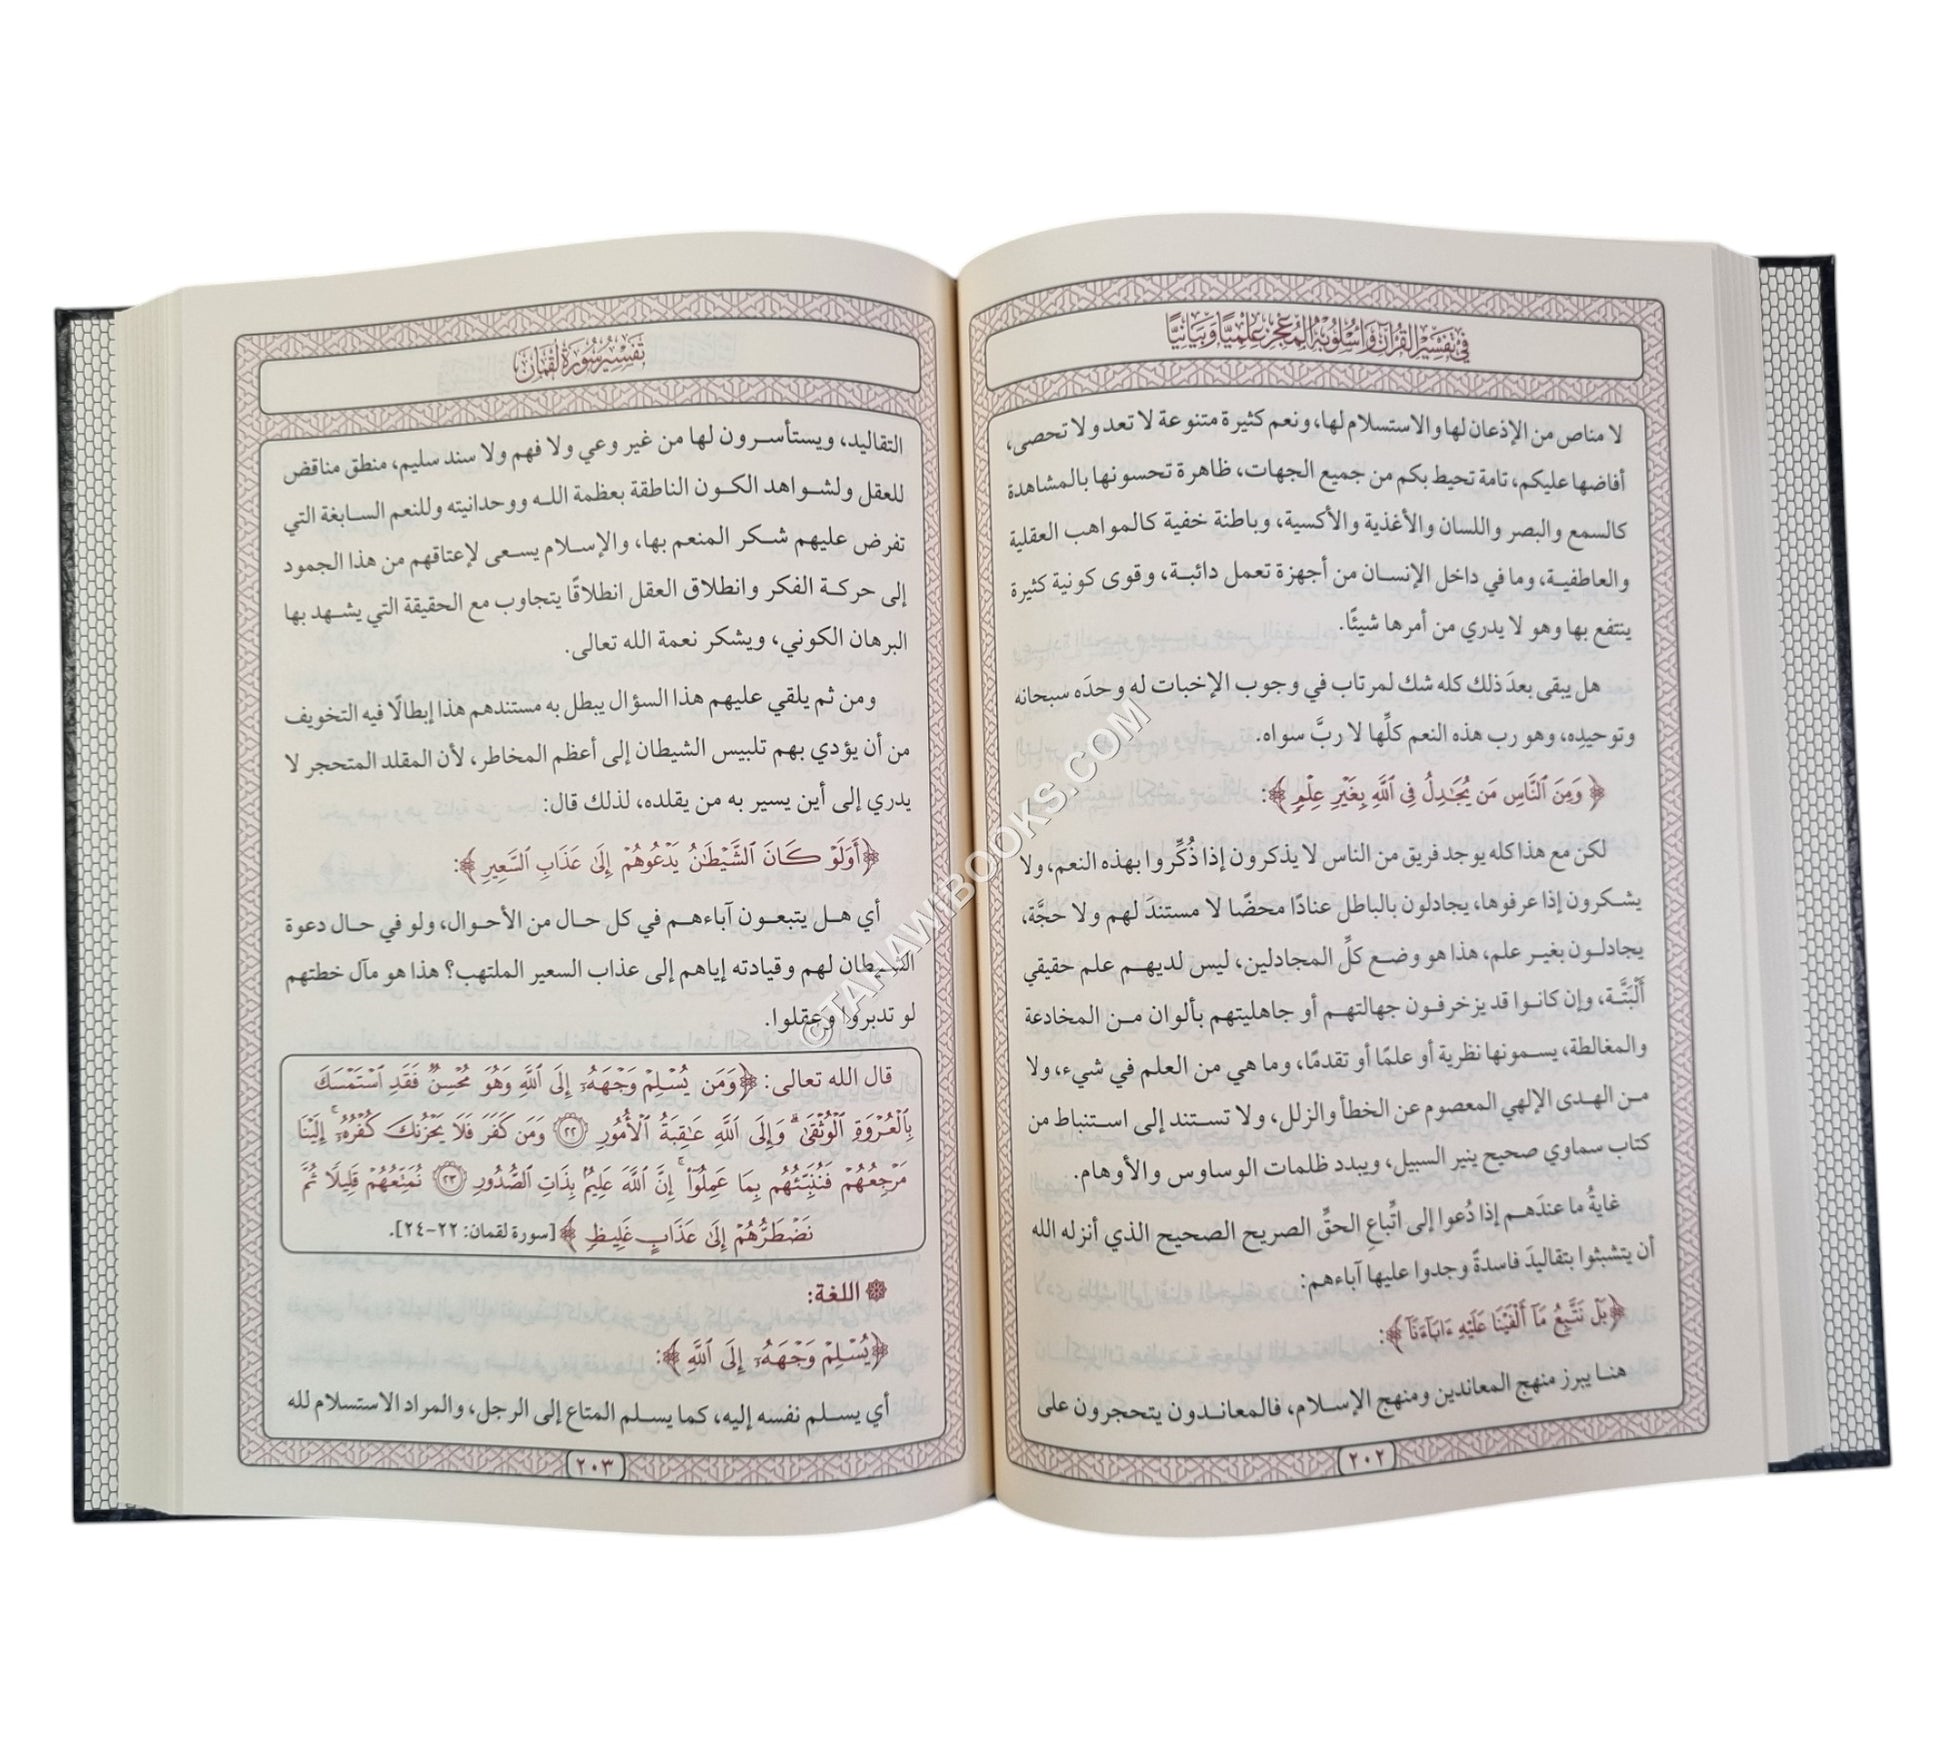 في تفسير القرآن وأسلوبه المعجز علميًّا وبيانيًّا
لا مناص من الإذعان لها والاستسلام لها، ونعم كثيرة متنوعة لا تعد ولا تحصى،
أفاضها عليكم، تامة تحيط بكم من جميع الجهات، ظاهرة تحسونها بالمشاهدة
كالسمع والبصر واللسان والأغذية والأكسية، وباطنة خفية كالمواهب العقلية
والعاطفية، وما في داخل الإنسان من أجهزة تعمل دائبة، وقوى كونية كثيرة
ينتفع بها وهو لا يدري من أمرها شيئًا.
هل يبقى بعدَ ذلك كله شك لمرتاب في وجوب الإخبات له وحدَه سبحانه
وتوحيدِه، وهو رب هذه النعم كلِّها لا ربَّ سواه.
﴿وَمِنَ ٱلنَّاسِ مَن يُجَٰدِلُ فِي ٱللَّهِ بِغَيۡرِ عِلۡمٖ﴾:
لكن مع هذا كله يوجد فريق من الناس لا يذكرون إذا ذُكِّروا بهذه النعم، ولا
يشكرون إذا عرفوها، يجادلون بالباطل عنادًا محضًا لا مستندَ لهم ولا حجَّة،
يجادلون بغير علم، هذا هو وضع كلِّ المجادلين، ليس لديهم علم حقيقي
أَلْبَتَّة، وإن كانوا قد يزخرفون جهالتهم أو جاهليتهم بألوان من المخادعة
والمغالطة، يسمونها نظرية أو علمًا أو تقدمًا، وما هي من العلم في شيء، ولا
من الهدى الإلهي المعصوم عن الخطأ والزلل، ولا تستند إلى استنباط من
كتاب سماوي صحيح ينير السبيل، ويبدد ظلمات الوساوس والأوهام.
غايةُ ما عندَهم إذا دُعوا إلى اتِّباعِ الحقِّ الصريح الصحيح الذي أنزله الله
أن يتشبثوا بتقاليدَ فاسدةٍ وجدوا عليها آباءهم:
﴿بَلۡ نَتَّبِعُ مَآ أَلۡفَيۡنَا عَلَيۡهِ ءَابَآءَنَآ﴾:
هنا يبرز منهج المعاندين ومنهج الإسلام، فالمعاندون يتحجرون على
٢٠٢
تفسير سورة لقمان
التقاليد، ويستأسرون لها من غير وعي ولا فهم ولا سند سليم، منطق مناقض
للعقل ولشواهد الكون الناطقة بعظمة الله ووحدانيته وللنعم السابغة التي
تفرض عليهم شكر المنعم بها، والإسلام يسعى لإعتاقهم من هذا الجمود
إلى حركة الفكر وانطلاق العقل انطلاقًا يتجاوب مع الحقيقة التي يشهد بها
البرهان الكوني، ويشكر نعمة الله تعالى.
ومن ثم يلقي عليهم هذا السؤال يبطل به مستندهم هذا إبطالًا فيه التخويف
من أن يؤدي بهم تلبيس الشيطان إلى أعظم المخاطر، لأن المقلد المتحجر لا
يدري إلى أين يسير به من يقلده، لذلك قال:
﴿أَوَلَوۡ كَانَ ٱلشَّيۡطَٰنُ يَدۡعُوهُمۡ إِلَىٰ عَذَابِ ٱلسَّعِيرِ﴾:
أي هل يتبعون آباءهم في كل حال من الأحوال، ولو في حال دعوة
الشيطان لهم وقيادته إياهم إلى عذاب السعير الملتهب؟ هذا هو مآل خطتهم
لو تدبروا وعقلوا.
قال الله تعالى: ﴿وَمَن يُسۡلِمۡ وَجۡهَهُۥٓ إِلَى ٱللَّهِ وَهُوَ مُحۡسِنٞ فَقَدِ ٱسۡتَمۡسَكَ
بِٱلۡعُرۡوَةِ ٱلۡوُثۡقَىٰۗ وَإِلَى ٱللَّهِ عَٰقِبَةُ ٱلۡأُمُورِ ٢٢ وَمَن كَفَرَ فَلَا يَحۡزُنكَ كُفۡرُهُۥٓۚ إِلَيۡنَا
مَرۡجِعُهُمۡ فَنُنَبِّئُهُم بِمَا عَمِلُوٓاْۚ إِنَّ ٱللَّهَ عَلِيمُۢ بِذَاتِ ٱلصُّدُورِ ٢٣ نُمَتِّعُهُمۡ قَلِيلٗا ثُمَّ
نَضۡطَرُّهُمۡ إِلَىٰ عَذَابٍ غَلِيظٖ﴾ [سورة لقمان: ٢٢-٢٤].
اللغة:
﴿يُسۡلِمۡ وَجۡهَهُۥٓ إِلَى ٱللَّهِ﴾:
أي يسلم نفسه إليه، كما يسلم المتاع إلى الرجل، والمراد الاستسلام لله
٢٠٣
©TAHAWIBOOKS.COM